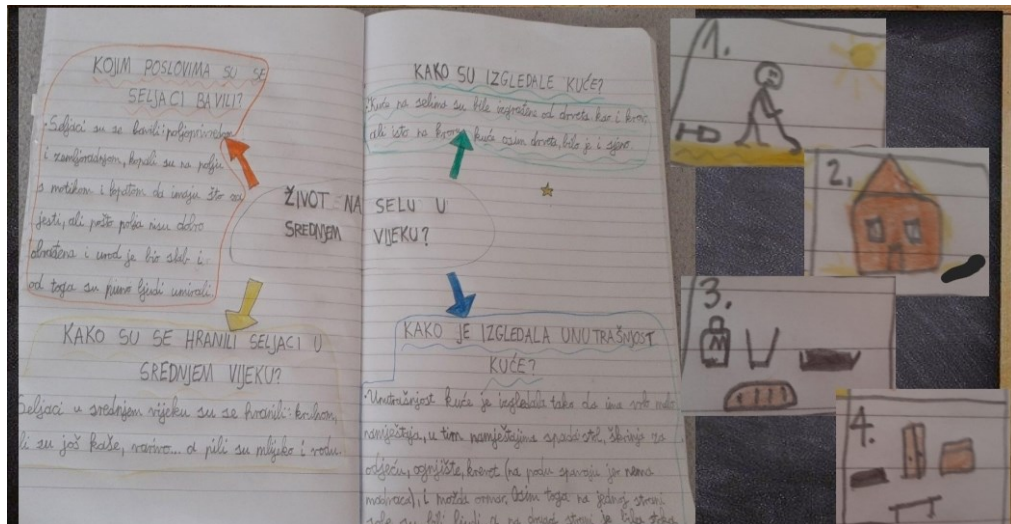 KOJIM POSLOVIMA SU SE
SELJACI BAVILI?
• Seljaci su se bavili: poljoprivredom
i zemljoradnjom, kopali su na polju
s motikom i lopatom da imaju što za
jesti, ali pošto polja nisu dobro
obrađena i urod je bio slab i
od toga su puno ljudi umirali.
ŽIVOT NA SELU U
SREDNJEM VIJEKU?
KAKO SU SE HRANILI SELJACI U
SREDNJEM VIJEKU?
Seljaci u srednjem vijeku su se hranili: kruhom,
li su još kaše, varivo... a pili su mlijeko i vodu.
KAKO SU IZGLEDALE KUĆE?
• Kuće na selima su bile izgrađene od drveta kao i krov,
ali isto na krovu kuće osim drveta, bilo je i sijeno.
KAKO JE IZGLEDALA UNUTRAŠNJOST
KUĆE?
• Unutrašnjost kuće je izgledala tako da ima vrlo malo
namještaja, u tim namještajima spada stol, škrinja za
odjeću, ognjište, krevet (na podu spavaju jer nema
madraca), i možda ormar. Osim toga na jednoj strani
sobe su bili ljudi a na drugoj strani je bila stoka
1.
2.
3.
M
4.